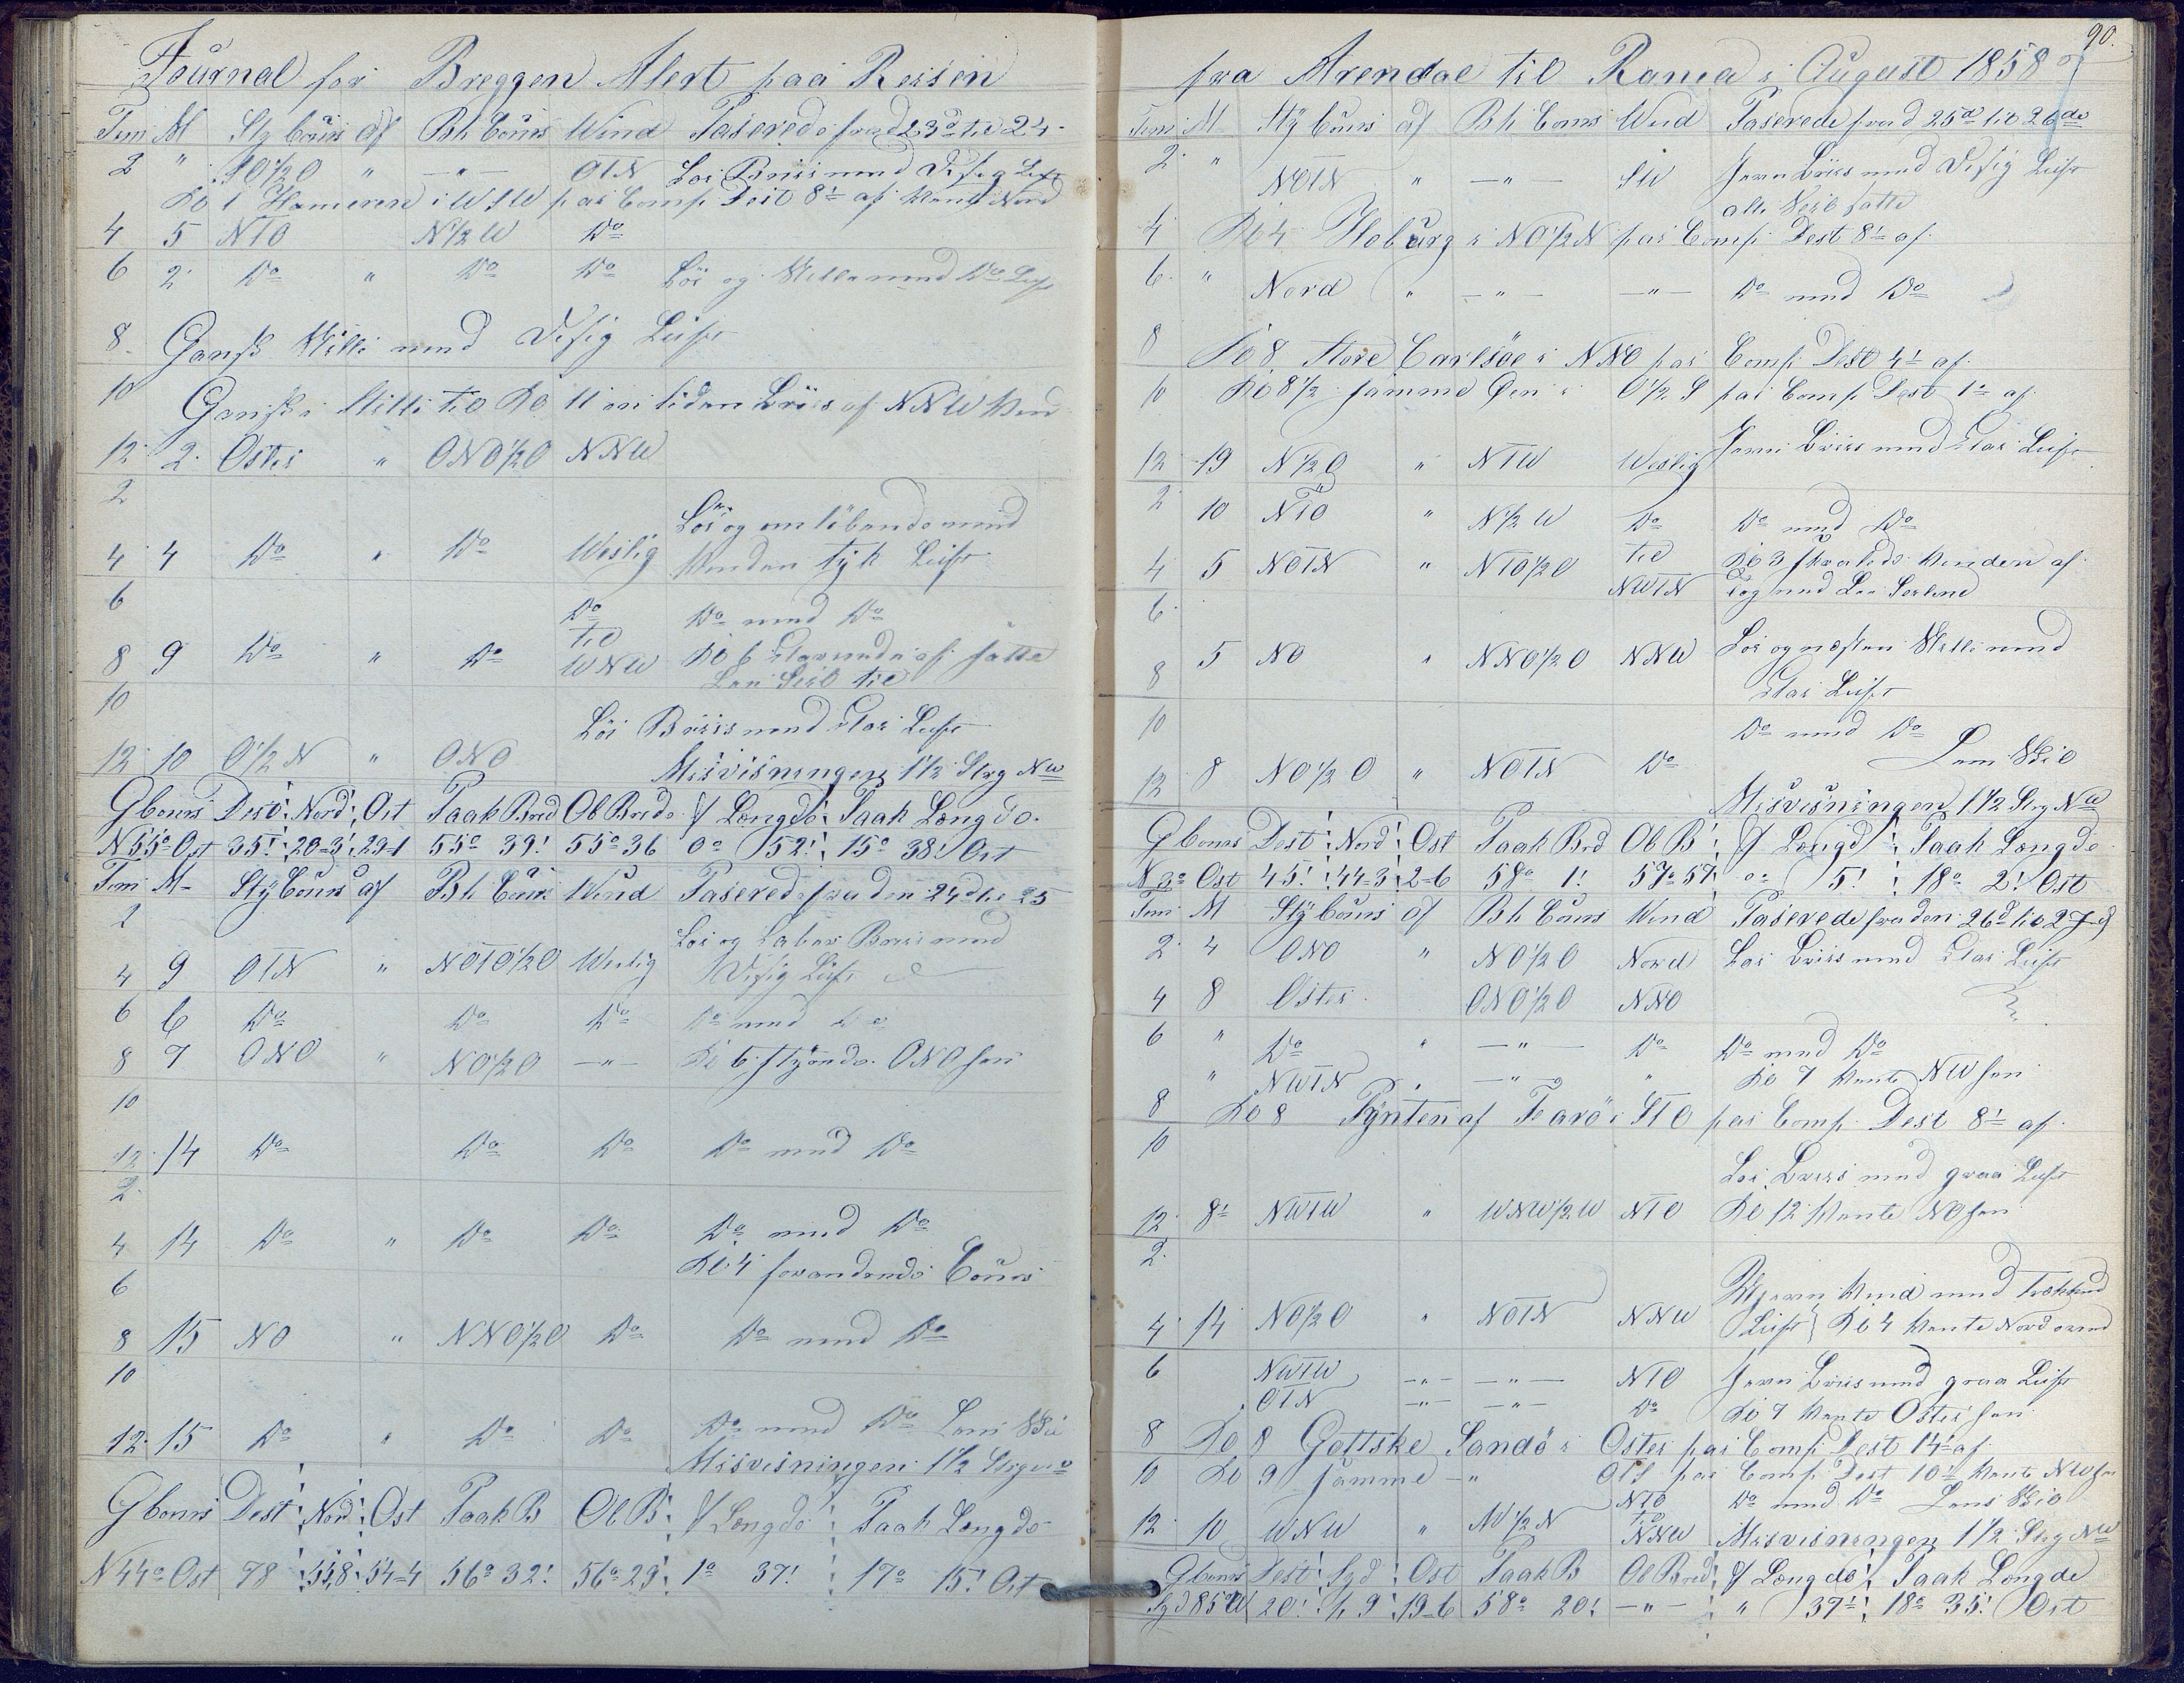 Journal for Breggen Alert paa Reisen
Tim M Sty Cours af Bh Cours Wind Paserede fra d 23d til 24
2 " SO1/2O " — " — OTN Lör Briis med Disig Luft
Ko 1 Hameren i WSW paa Comp Dest 8' af Vente Nord
4 5 NTO N1/2W Do
6 2 Do " Do Do Lör og Stille med Do Luft
8 Gansk Stille med Disig Luft
10 Ganske Stille til Ko 11 en liden Bris af NNW Vend
12 2 Oster " ONO1/2O NNW
2 Lör og omlöbende med
4 4 Do " Do Weslig Vinden tyk Luft
6 Do Do med Do
8 9 Do " Do til WNW Ko 6 Klarnede af satte
Læ Seil til
10 Lör Briis med klar Luft
12 10 O1/2N " ONO Misvisningen 1 1/2 Streg NW
G Cours Dest Nord Ost Paak Bred Ob Brede f Længde Paak Længde
N 55o Ost 35' 20-3 29-1 55o 39' 55o 36 0o 52' 15o 38' Ost
Tim M Sty Cours af Bh Cours Wind Paserede fra den 24d til 25
2 Lör og Laber Briis med
4 9 OTN " NOTO1/2O Weslig Disig Luft
6 6 Do Do Do Do med Do
8 7 ONO " NO1/2O — " — Ko 6 styrede ONO hen
10
12 14 Do Do Do Do med Do
2
4 14 Do " Do Do Do med Do
Ko 4 forandrede Cours
6
8 15 NO " NNO1/2O Do Do med Do
10
12 15 Do " Do Do Do med Do Lens
Misvisningen 1 1/2 Streg NW
G Cours Dest Nord Ost Paak B Ob B f Længde Paak Længde
N 44o Ost 78 55,8 54-4 56o 32' 56o 29' 1o 37' 17o 15' Ost
90.
fra Arendal til Ranea i August 1858
Tim M Sty Cours af Bh Cours Wind Paserede fra d 25d til 26de
2 " NOTN " — " — SW Jævn Briis med Disig Luft
alle Seil satte
4 Ko 4 Hoburg i NO1/2N paa Comp Dest 8' af
6 " Nord " — " — — " — Do med Do
8 Ko 8 Store Carlsöe i NNO paa Comp Dest 4' af
10 Ko 8 1/2 samme Öen i O1/2S paa Comp Dest 1' af
12 19 N1/2O " NTW Weslig Jævn Briis med klar Luft
2 10 NTO " N1/2W Do Do med Do
4 5 NOTN " NTO1/2O til Ko 3 skralede Vinden af
NWTN tog ind Læ Seilene
6
5 NO " NNO1/2O NNW Lör og næsten Stille med
8 klar Luft
10 Do med Do
12 8 NO1/2O " NOTN Do Lens
Misvisningen 1 1/2 Streg NW
G Cours Dest Nord Ost Paak Bred Ob B f Længd Paak Længde
N 3o Ost 45' 44-3 2-6 58o 1' 57o 57 o 5' 18o 2' Ost
Tim M Sty Cours af Bh Cours Wind Paserede fra den 26d til 27d
2 4 ONO " NO1/2O Nord Lör Briis med klar Luft
4 8 Oster ONO1/2O NNO
6 " Do " — " — Do Do med Do
" NWTN " — " — " Ko 7 Vente NW hen
8 Ko 8 Pynten af Farö i STO paa Comp Dest 8' af
10 Lör Briis med graa Luft
12 8' NWTW " WNW1/2W NTO Ko 12 Vente NO hen
2
Stjævn Vind med Trækkend
4 14 NO1/2O " NOTN NNW Luft Ko 4 Vente Nord over
6 NWTW — " — — " — NTO Jævn Briis med graa Luft
OTN — " — — " — Do Ko 7 Vente Oster hen
8 Ko 8 Gottske Sandö i Oster paa Comp Dest 14' af
10 Ko 9 samme — " OTS paa Comp Dest 10' Vente NW hen
NTO Do med Do Lens
12 10 WNW " W1/2N til NNW Misvisningen 1 1/2 Streg NW
G Cours Dest Syd Ost Paak B Ob Bred f Længde Paak Længde
Syd 85o W 20' 1,9 19-6 58o 20' — " — " 37' 18o 35' Ost